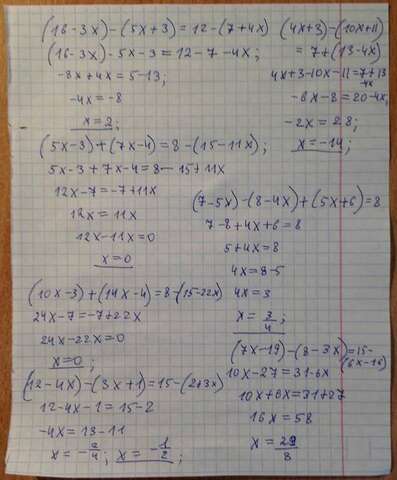 (16-3x)-(5x+3)=12-(7+4x)
(16-3x)-5x-3=12-7-4x;
-8x+4x=5-13;
-4x=-8
x=2;
(4x+3)-(10x+11)
=7+(13-4x)
4x+3-10x-11=7+13
-4x
-6x-8=20-4x;
-2x=28;
x=-14;
(5x-3)+(7x-4)=8-(15-11x);
5x-3+7x-4=8-15+11x
12x-7=-7+11x
12x=11x
12x-11x=0
x=0
(7-5x)-(8-4x)+(5x+6)=8
7-8+4x+6=8
5+4x=8
4x=8-5
4x=3
x=3/4;
(10x-3)+(14x-4)=8-(15-22x)
24x-7=-7+22x
24x-22x=0
x=0;
(12-4x)-(3x+1)=15-(2+3x)
12-4x-1=15-2
-4x=13-11
x=-2/4; x=-1/2;
(7x-19)-(8-3x)=15-
(6x-16)
10x-27=31-6x
10x+6x=31+27
16x=58
x=29/8